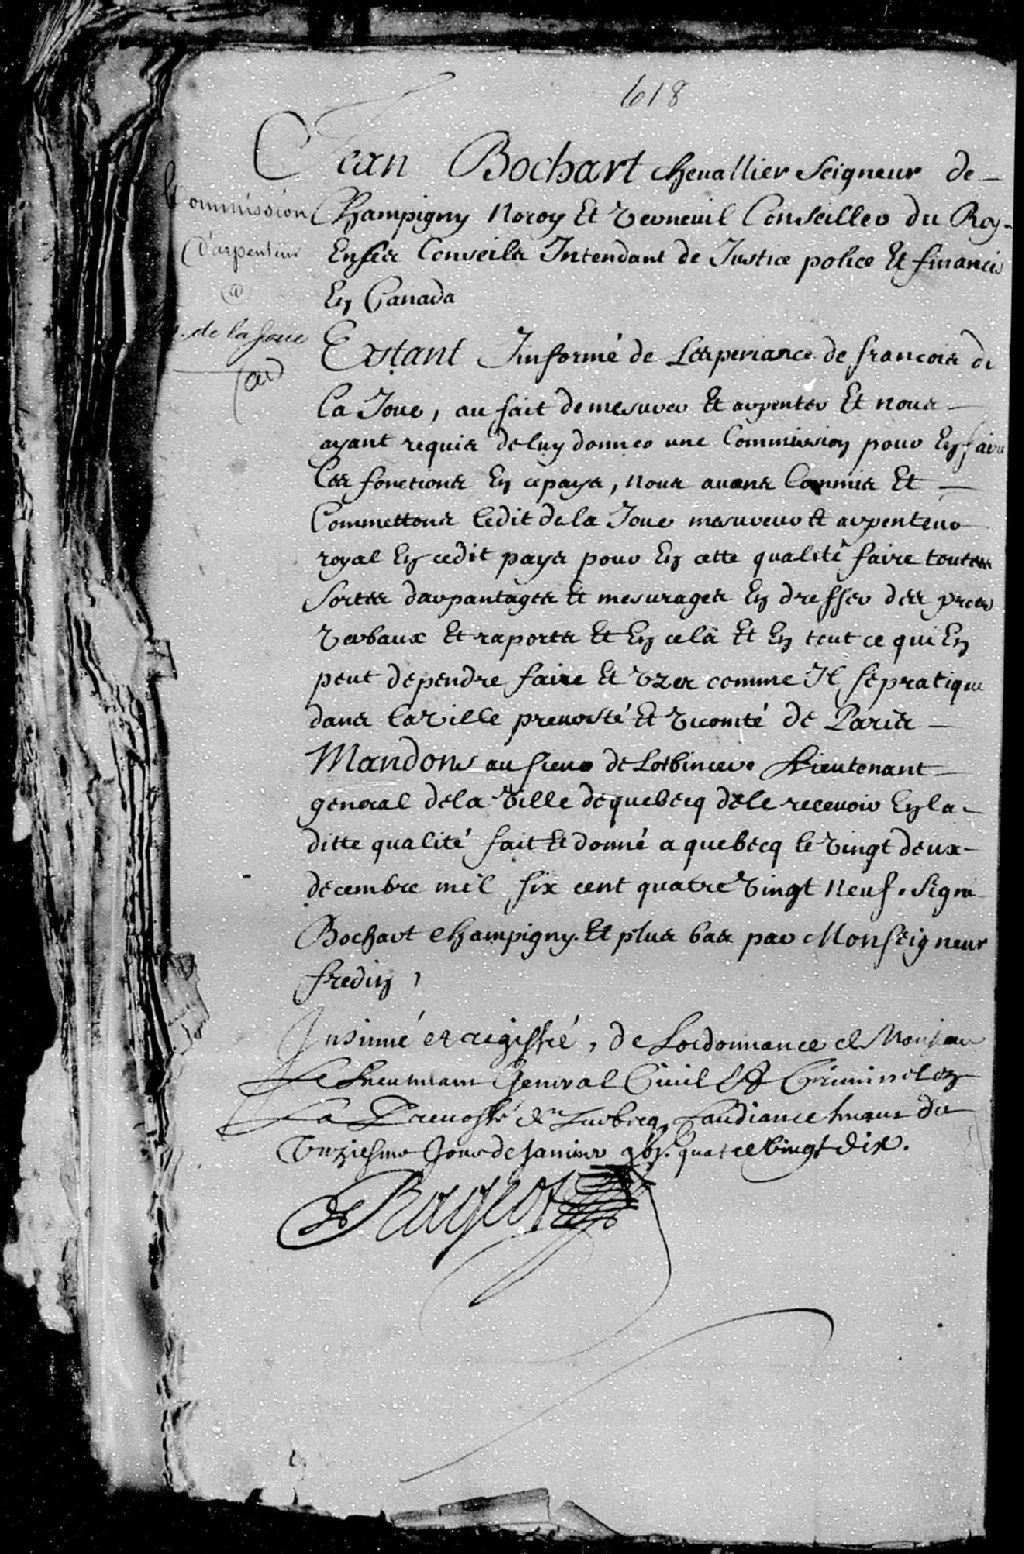 618
Commission
Darpenteur
@
de la Joue
Jean Bochart chevallier Seigneur de
Champigny Noroy Et Verneuil Conseiller du Roy
En ses Conseils Intendant de Justice police Et finances
En Canada
Estant Informé de Lesperiance de francois de
La Joue, au fait de mesurer Et arpenter Et nous
ayant requis de luy donner une Commission pour En faire
Les fonctions En ce pays, nous avons Commis Et
Commettons ledit de la Joue mesureur Et arpenteur
royal En cedit pays pour En cette qualité faire toutes
Sortes darpantages Et mesurages En dresser des proces
Verbaux Et raports Et En cela Et En tout ce qui En
peut dependre faire Et Vzer comme Il se pratique
dans la Ville prevosté Et Vicomté de Paris
Mandons au sieur de Lotbiniere Lieutenant
general de la Ville de quebecq de le recevoir En la
ditte qualité fait Et donné a quebecq le Vingt deux
decembre mil six cent quatre Vingt neuf. Signé
Bochart Champigny. Et plus bas par Monseigneur
fredin,
Insinué et registré, de Lordonnance de Monsieur
Le Lieutenant General Civil Et Criminel en
La Prevosté de Quebecq, Laudiance tenant du
Vnziesme Jour de Janvier gbj.c quatre Vingt dix.
Rageot